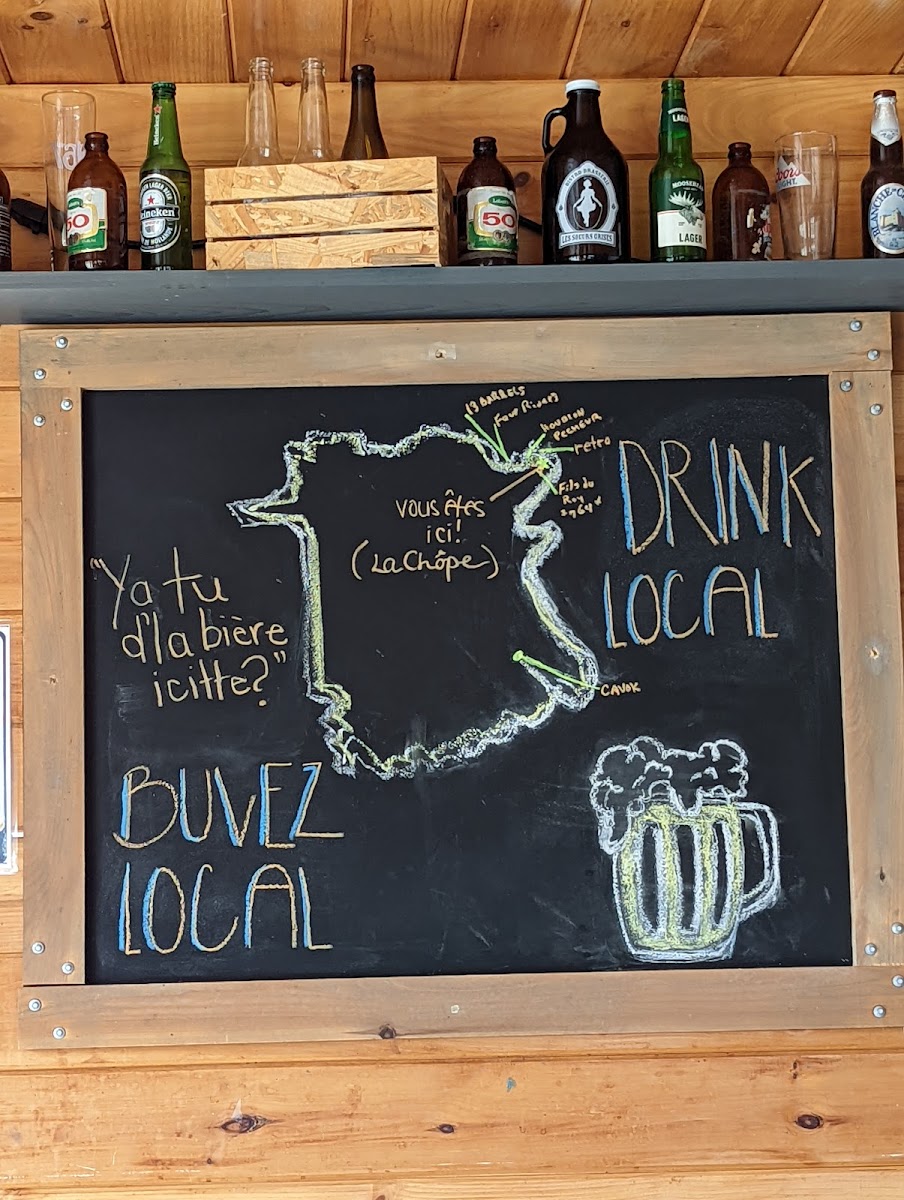 50
Heineken
Labatt
50
BISTRO BRASSERIE
LES SOEURS GRISES
LAGER
MOOSEHEAD
LAGER
Coors
LIGHT
19 BARRELS
Four Rivers
HOUBLON
PECHEUR
retro
Fils du
Roy
VOUS êtes
ici!
(La Chôpe)
DRINK
LOCAL
"Ya tu
d'la bière
icitte?"
CAVOK
BUVEZ
LOCAL